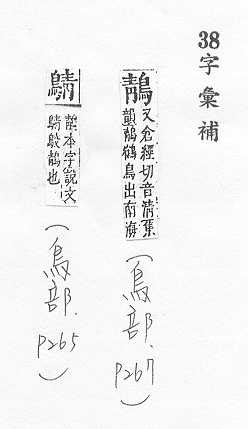 38字彙補
鶄 又倉經切音清集
韻鶄鶴鳥出南海
(鳥部. p267)
鶄本字說文
鶄也
(鳥部. p265)